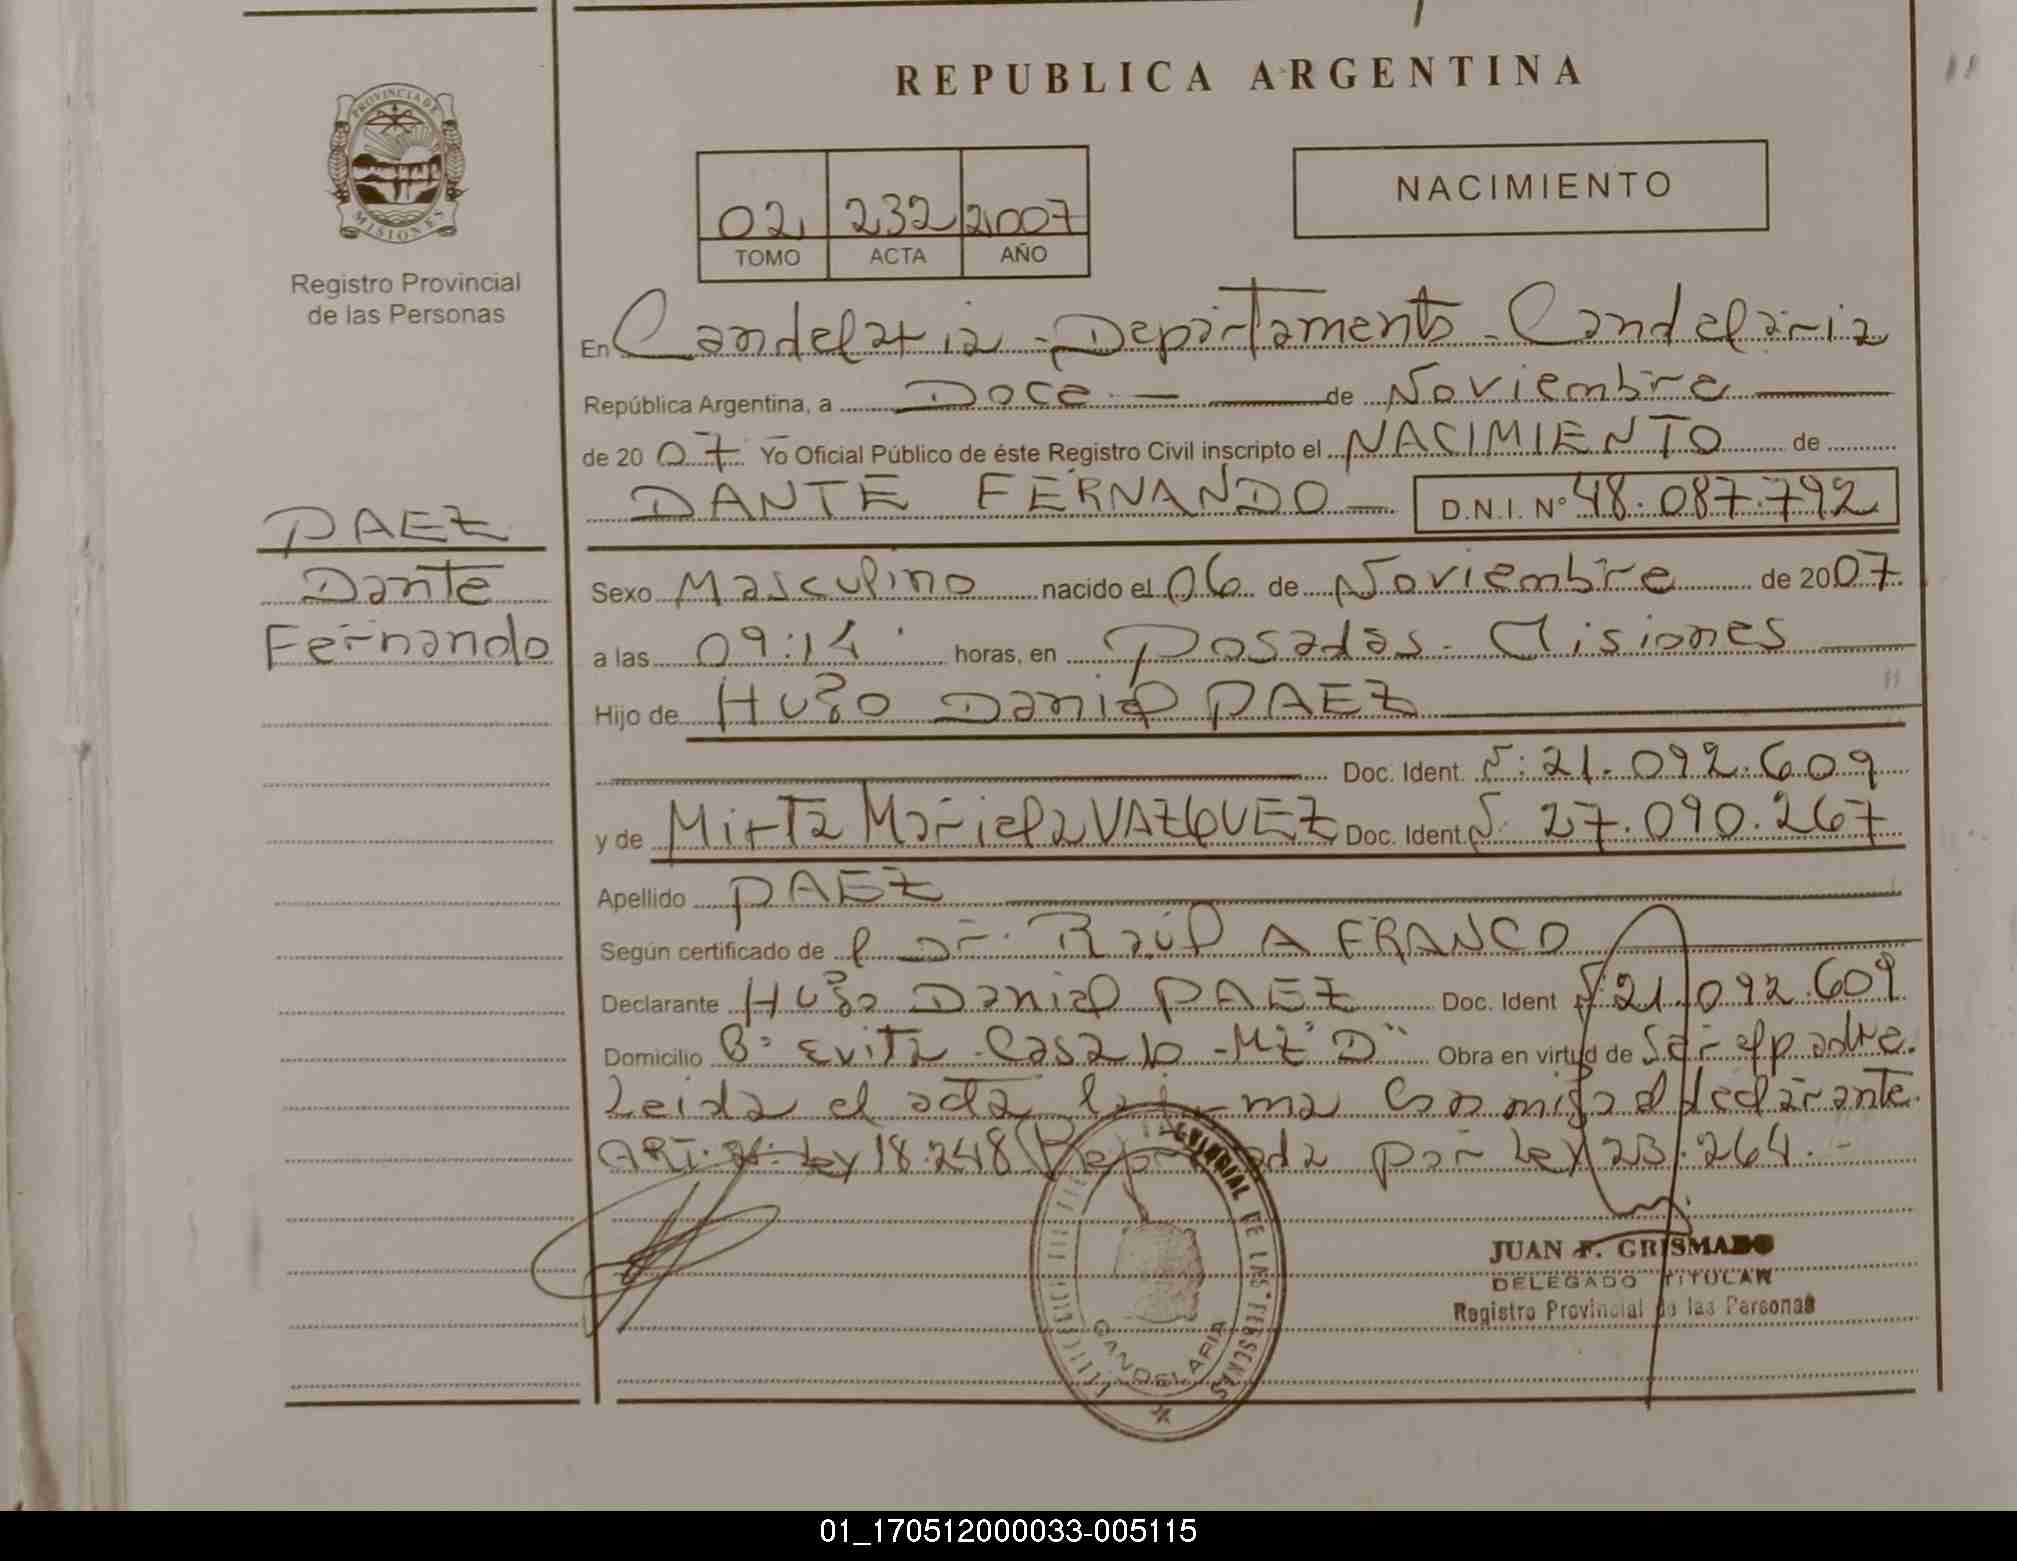 REPUBLICA ARGENTINA
PROVINCIA DE
MISIONES
Registro Provincial
de las Personas
NACIMIENTO
02 232 2007
TOMO ACTA AÑO
En Candelaria - Departamento - Candelaria
República Argentina, a Doce de Noviembre
de 2007 Yo Oficial Público de éste Registro Civil inscripto el NACIMIENTO de
DANTE FERNANDO D.N.I. Nº 48.087.792
PAEZ
Dante
Fernando
Sexo Masculino nacido el 06 de Noviembre de 2007
a las 09:14 horas, en Posadas - Misiones
Hijo de Hugo Daniel PAEZ
Doc. Ident. N: 21.092.609
y de Mirta Mariela VAZQUEZ Doc. Ident. N. 27.090.267
Apellido PAEZ
Según certificado de l Dr. Raúl A FRANCO
Declarante Hugo Daniel PAEZ Doc. Ident N. 21.092.609
Domicilio Bº Evita - Casa 10 - Mz "D" Obra en virtud de Ser el padre.
Leida el acta la firma conmigo el declarante.
ART. Ley 18.248 por Ley 23.264.-
DE LAS PERSONAS
CANDELARIA
JUAN F. GRISMADO
DELEGADO TITULAR
Registro Provincial de las Personas
01_170512000033-005115